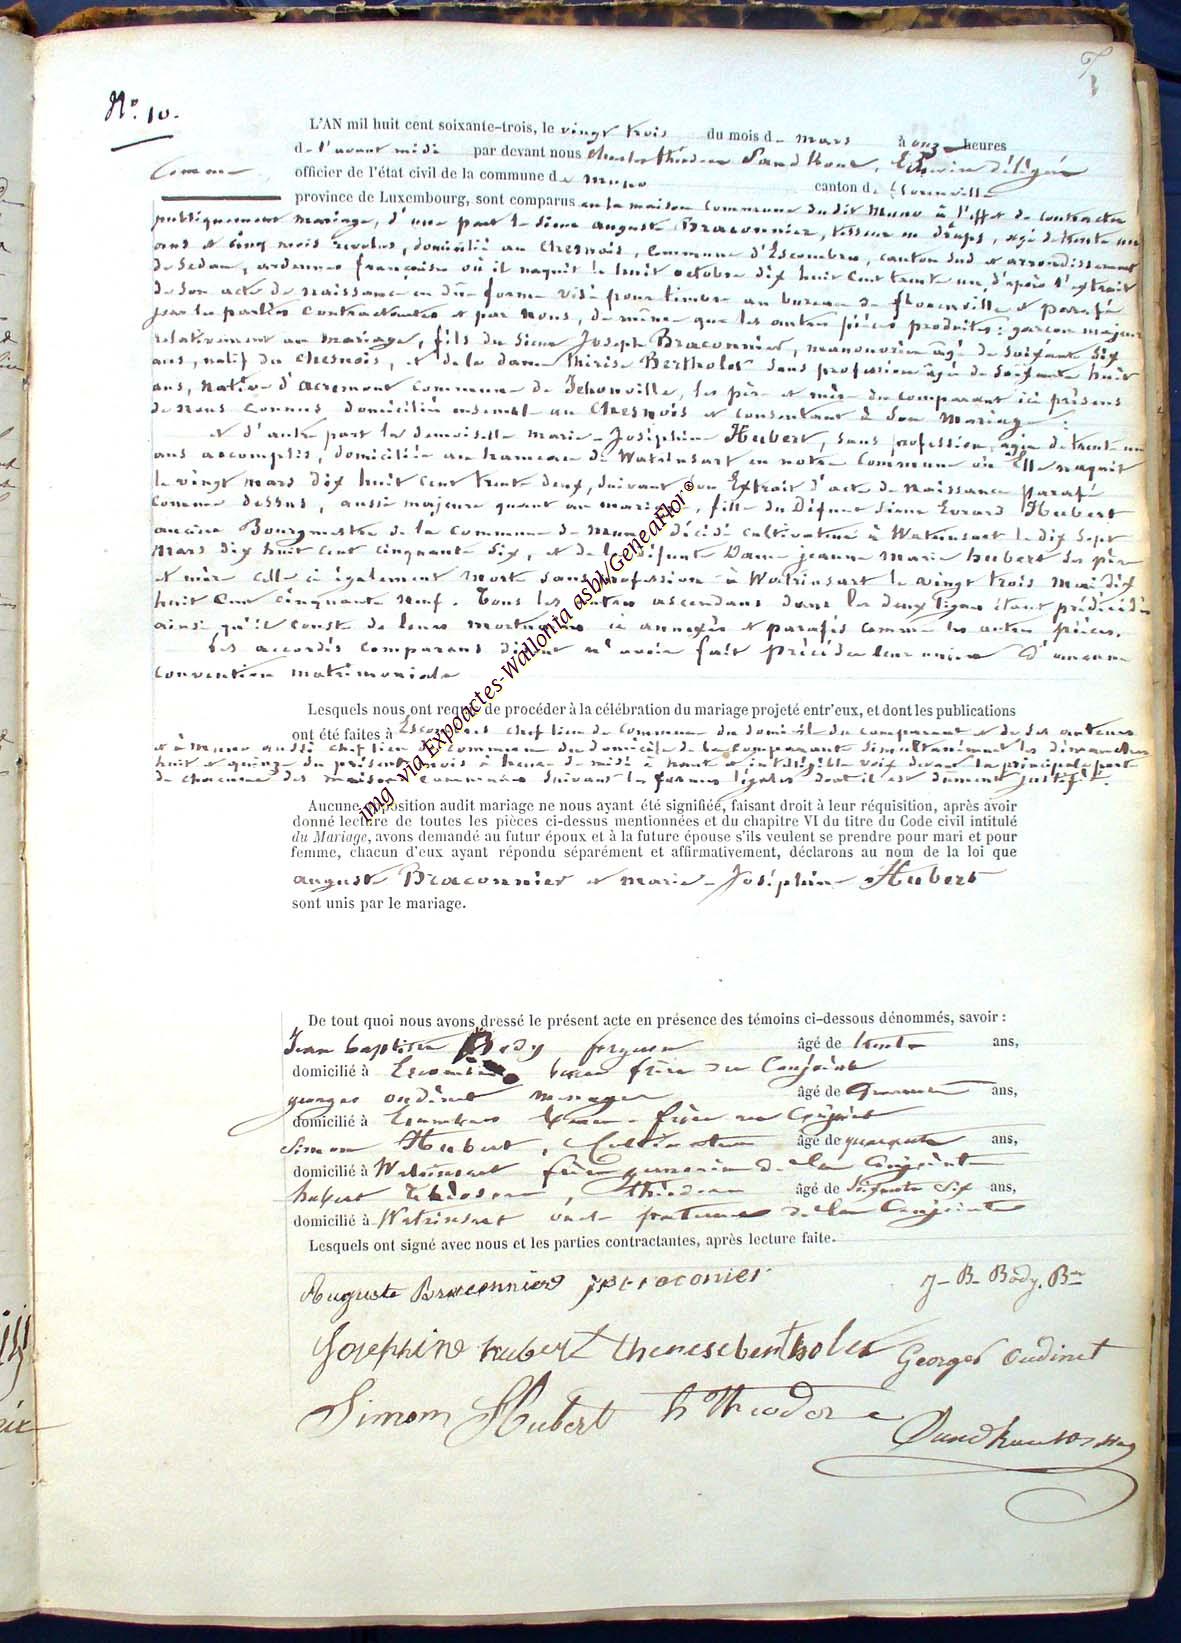 N° 10.
L'AN mil huit cent soixante-trois, le vingt trois du mois de mars à onze heures
de l'avant midi par devant nous Echevin délégué
Comme officier de l'état civil de la commune de Muno canton de Florenville
province de Luxembourg, sont comparus en la maison Commune du dit Muno à l'effet de contracter
publiquement mariage, d'une part le sieur auguste Braconnier, tisseur en draps, agé de trente un
ans et cinq mois révolus, domicilié au Chesnois, Commune d'Escombres, canton sud et arrondissement
de Sedan, ardennes françaises où il naquit le huit octobre dix huit cent trente un, d'après l'extrait
de son acte de naissance en due forme visé pour timbre au bureau de florenville et parafé
par les parties contractantes et par nous, de même que les autres pièces produites: garçon majeur
relativement au mariage, fils du sieur Joseph Braconnier, manouvrier âgé de soixante six
ans, natif du Chesnois, et de la dame thérèse Bertholet sans profession âgée de soixante huit
ans, native d'acremont commune de Jehonville, les père et mère du comparant ici présens
de nous connus domiciliés ensemble au Chesnois et consentant à son mariage;
et d'autre part la demoiselle marie-Joséphine Hubert, sans profession, agée de trente un
ans accomplis, domiciliée au hameau de Watrinsart en notre Commune où Elle naquit
le vingt mars dix huit cent trente deux, suivant son Extrait d'acte de naissance parafé
comme dessus, aussi majeure quant au mariage, fille du Défunt sieur Evrard Hubert
ancien Bourgmestre de la commune de Muno décédé cultivateur à Watrinsart le dix sept
Mars dix huit cent cinquante six, et de la défunte Dame jeanne marie hubert ses père
et mère celle ci également morte sans profession à Watrinsart le vingt trois mai dix
huit cent cinquante neuf. Tous les autres ascendans dans les deux lignes étant prédécédés
ainsi qu'il conste de leurs mortuaires ci annexés et parafés comme les autres pièces.
Les accordés comparans disent n'avoir fait précéder leur union d'aucune
convention matrimoniale
Lesquels nous ont requis de procéder à la célébration du mariage projeté entr'eux, et dont les publications
ont été faites à Escombres chef lieu de Commune du domicile du comparant et de ses auteurs
et à Muno aussi chef lieu de Commune du domicile de la comparante simultanément les dimanches
huit et quinze du présent mois à heure de midi à haute et intelligible voix devant la principale porte
de chacune des maisons communes suivant les formes légales dont il est dûment justifié.
Aucune opposition audit mariage ne nous ayant été signifiée, faisant droit à leur réquisition, après avoir
donné lecture de toutes les pièces ci-dessus mentionnées et du chapitre VI du titre du Code civil intitulé
du Mariage, avons demandé au futur époux et à la future épouse s'ils veulent se prendre pour mari et pour
femme, chacun d'eux ayant répondu séparément et affirmativement, déclarons au nom de la loi que
auguste Braconnier et marie-Joséphine Hubert
sont unis par le mariage.
De tout quoi nous avons dressé le présent acte en présence des témoins ci-dessous dénommés, savoir :
Jean baptiste Body âgé de trente ans,
domicilié à Escombres beau frère du Conjoint
georges oudinet âgé de ans,
domicilié à Escombres beau-frère du Conjoint
Simon Hubert, Cultivateur âgé de quarante ans,
domicilié à Watrinsart frère germain de la Conjointe
hubert théodore, âgé de soixante six ans,
domicilié à Watrinsart oncle de la Conjointe
Lesquels ont signé avec nous et les parties contractantes, après lecture faite.
Auguste Braconnier J Braconier J-B- Body. Bre
Josephine hubert theresebertholet Georges Oudinet
Simon Hubert h Theodore
img via Expoactes-Wallonia asbl/GeneaFlor®